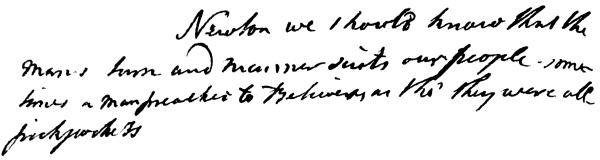 Newton we should know that the
man's turn and manner suits our people - some
times a man preaches to Believers as tho' they were all
pickpockets